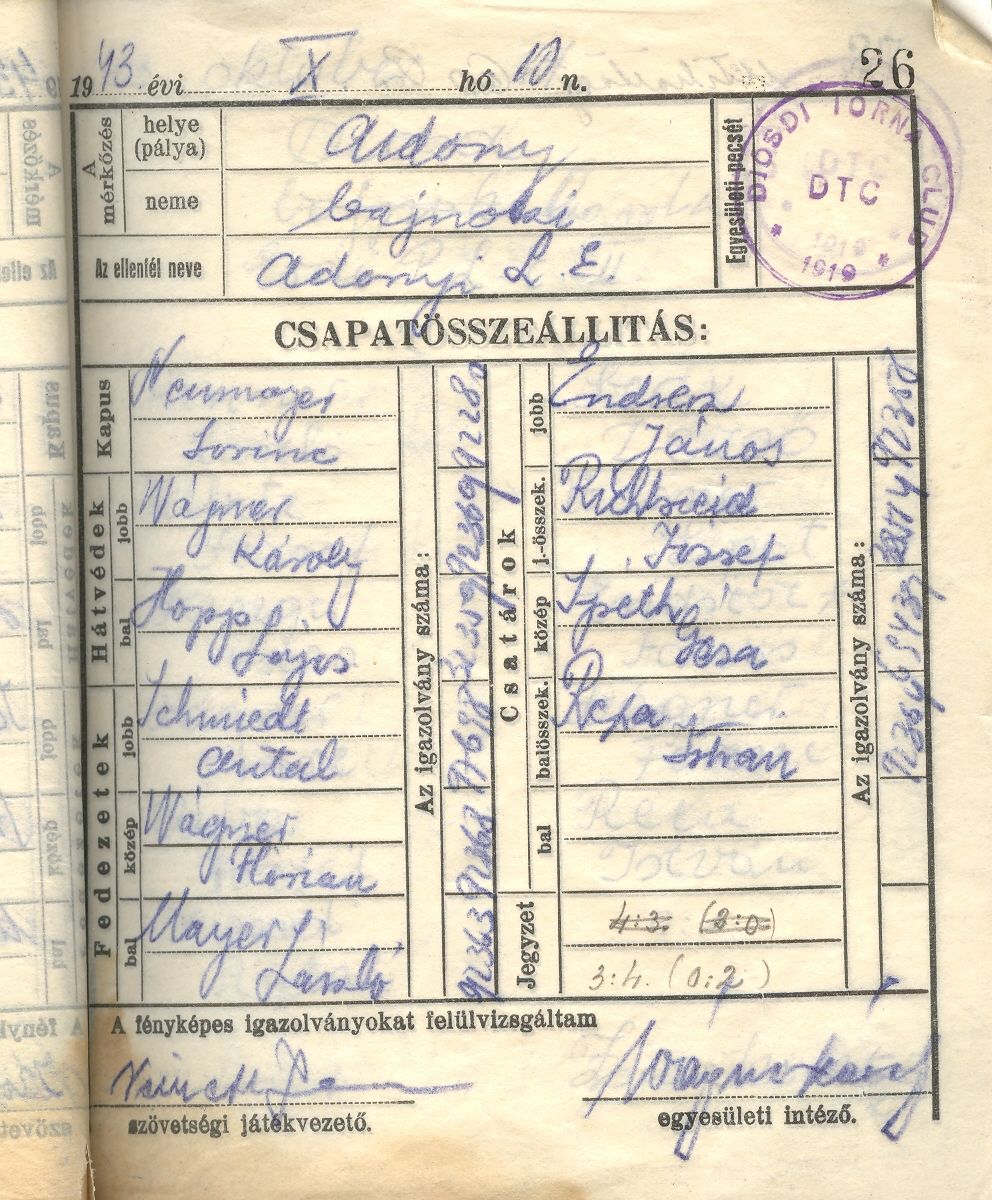 26
1943 évi X hó 10 n.
A mérkőzés
helye (pálya)
Adony
neme
bajnoki
Az ellenfél neve
Adonyi L. E.
Egyesületi pecsét
DIOSDI TORNA CLUB
DTC
* 1919 *
CSAPATÖSSZEÁLLITÁS:
Kapus
Neumayer
Lorinc
Hátvédek
jobb
Wágner
Károly
bal
Hopp
Lajos
Fedezetek
jobb
Schmiedt
Antal
közép
Wágner
Flórián
bal
Mayer
László
Az igazolvány száma:
Csatárok
jobb
Endresz
János
j.-összek.
József
közép
Späth
Géza
balösszek.
Repa
István
bal
Az igazolvány száma:
Jegyzet
4:3. (2:0)
3:4. (0:2)
A fényképes igazolványokat felülvizsgáltam
szövetségi játékvezető.
egyesületi intéző.